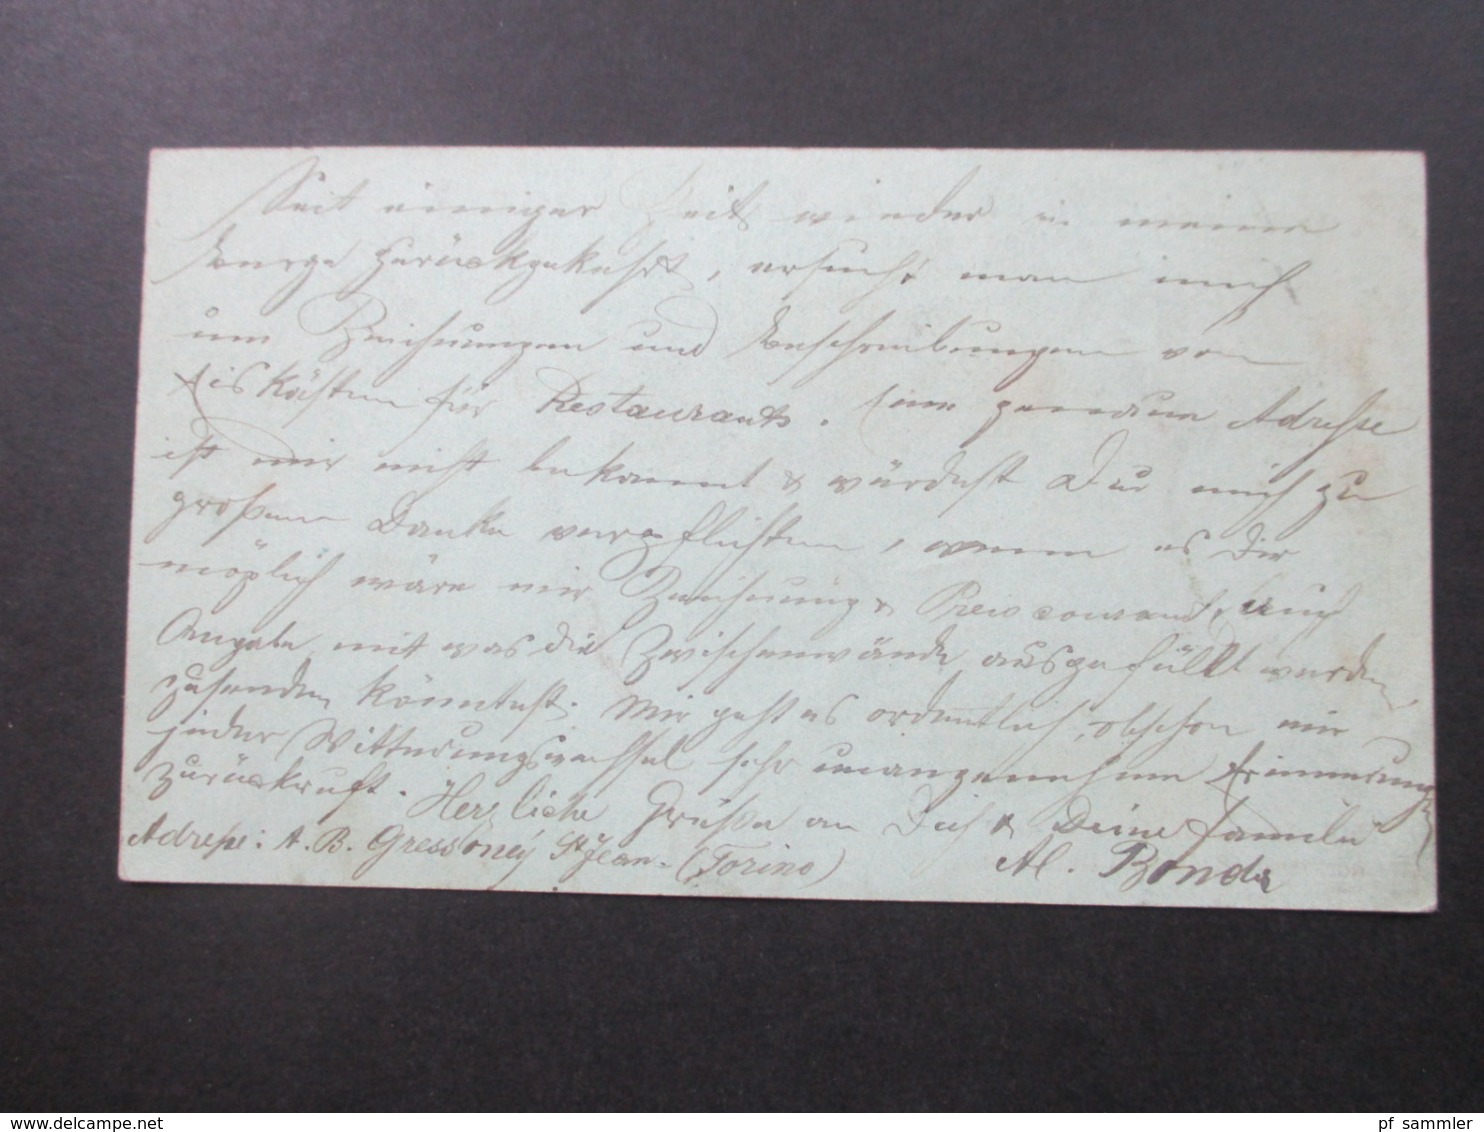 Seit einiger Zeit wieder in meine
Berge zurückgekehrt, ersucht man mich
um Zeichnungen und Beschreibungen von
Eiskästen für Restaurants. Eine genaue Adresse
ist mir nicht bekannt & würdest Du mich zu
großem Danke verpflichten, wenn es Dir
möglich wäre mir Zeichnung & Preiscourant, auch
Angabe, mit was die Zwischenwände ausgefüllt werden,
zusenden könntest. Mir geht es ordentlich, obschon mir
jeder Witterungswechsel sehr unangenehme Erinnerung
zurückruft. Herzliche Grüße an Dich & Deine Familie
Adresse: A. B. Gressoney St Jean - (Torino) Al. Bonda
delcampe.net
pf_sammler